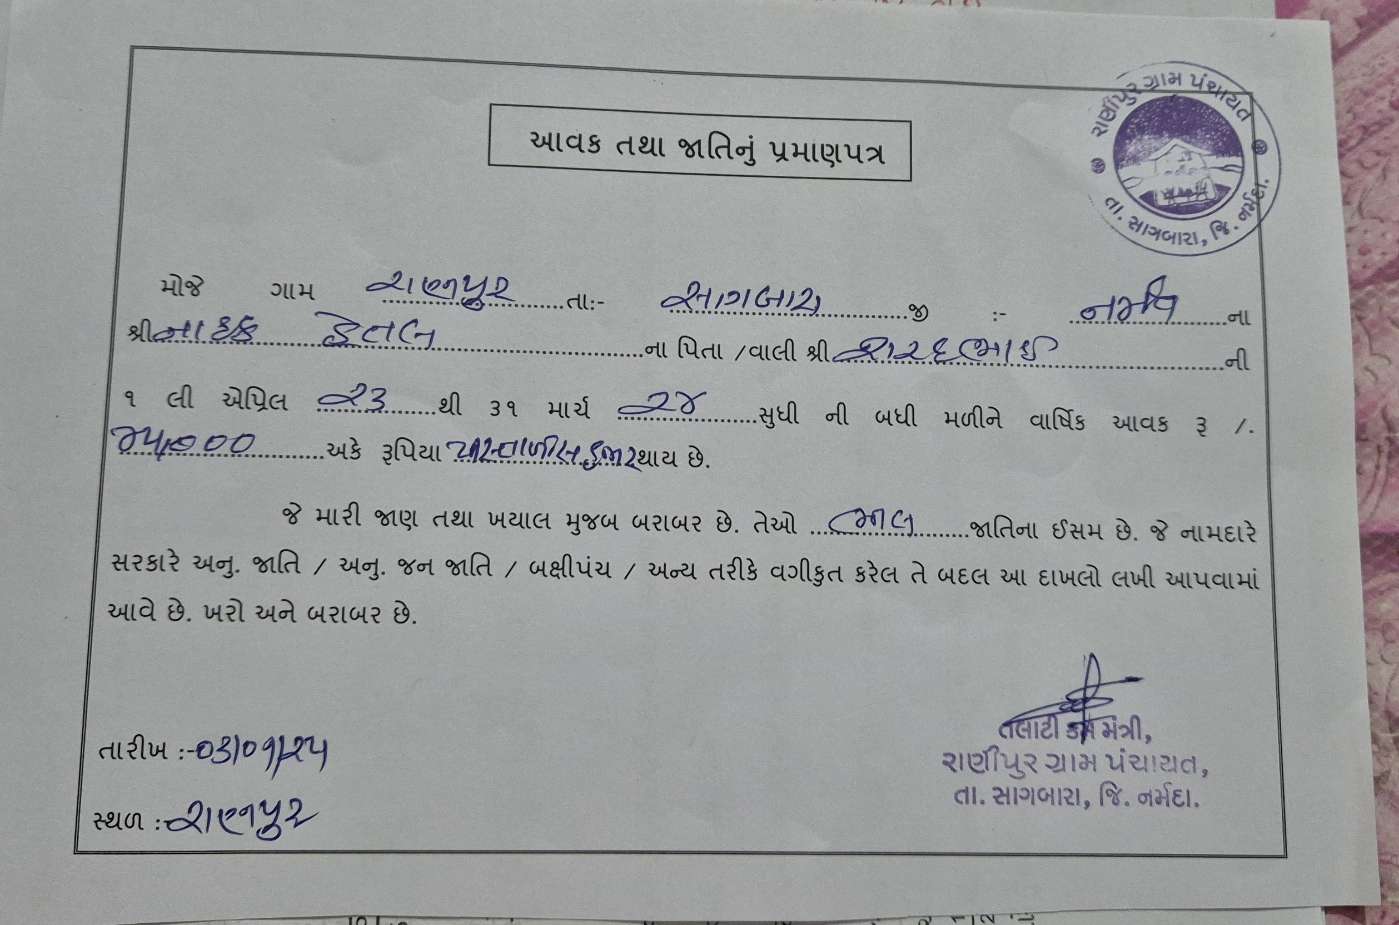 રાણીપુર ગ્રામ પંચાયત
તા. સાગબારા, જિ. નર્મદા.
આવક તથા જાતિનું પ્રમાણપત્ર
મોજે ગામ રાણીપુર તા:- સાગબારા જી :- નર્મદા ના
શ્રી નાઈક હેતલ ના પિતા /વાલી શ્રી શરદભાઈ ની
૧ લી એપ્રિલ ૨૩ થી ૩૧ માર્ચ ૨૪ સુધી ની બધી મળીને વાર્ષિક આવક રૂ /.
૪૫૦૦૦ અકે રૂપિયા પીસ્તાળીસ હજાર થાય છે.
જે મારી જાણ તથા ખયાલ મુજબ બરાબર છે. તેઓ ભીલ જાતિના ઈસમ છે. જે નામદારે
સરકારે અનુ. જાતિ / અનુ. જન જાતિ / બક્ષીપંચ / અન્ય તરીકે વગીકુત કરેલ તે બદલ આ દાખલો લખી આપવામાં
આવે છે. ખરો અને બરાબર છે.
તલાટી કમ મંત્રી,
તારીખ :-૦૩/૦૧/૨૫
રાણીપુર ગ્રામ પંચાયત,
તા. સાગબારા, જિ. નર્મદા.
સ્થળ :- રાણીપુર